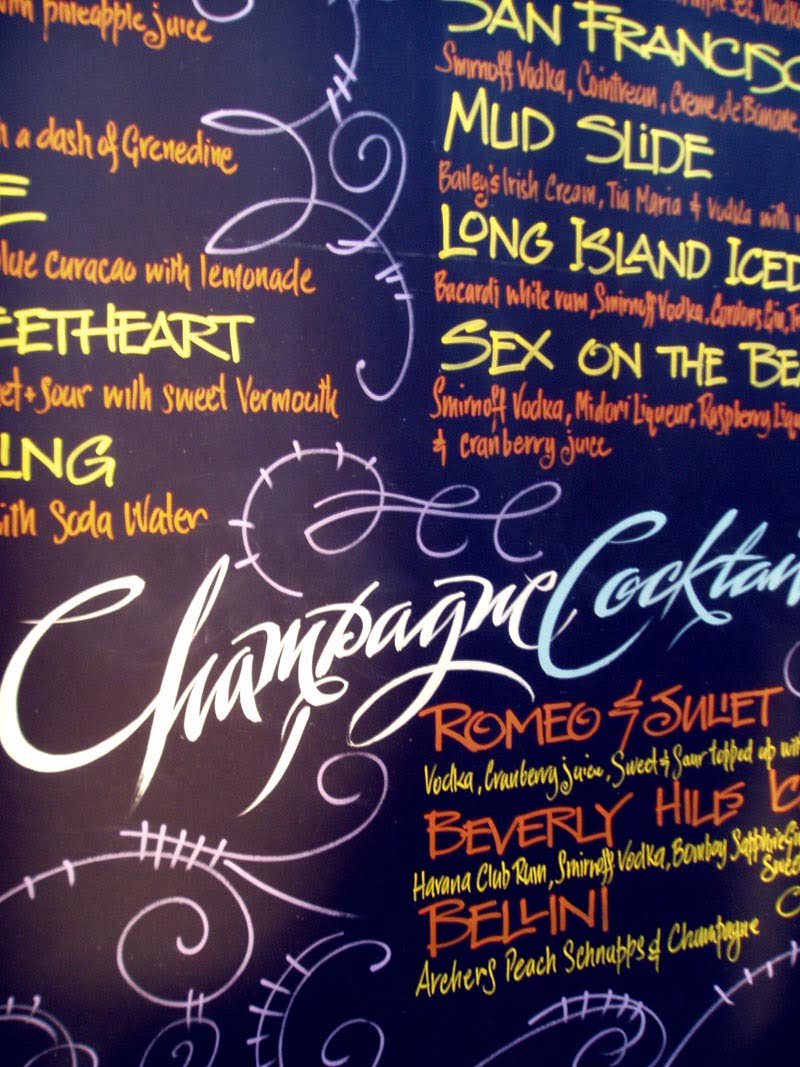 with pineapple juice
a dash of Grenedine
E
Blue Curacao with lemonade
EETHEART
et + Sour with sweet Vermouth
ING
with Soda Water
Vodka
SAN FRANCISCO
Smirnoff Vodka, Cointreau, Creme de Banane,
MUD SLIDE
Bailey's Irish Cream, Tia Maria & Vodka with
LONG ISLAND ICED
Bacardi white rum, Smirnoff Vodka, Gordons Gin,
SEX ON THE BEA
Smirnoff Vodka, Midori Liqueur, Raspberry Liq
& cranberry juice
Champagne Cocktai
ROMEO & JULIET
Vodka, Cranberry juice, Sweet & Sour topped up wit
BEVERLY HILLS IC
Havana Club Rum, Smirnoff Vodka, Bombay Sapphire Gin
Sweet
BELLINI
Archers Peach Schnapps & Champagne